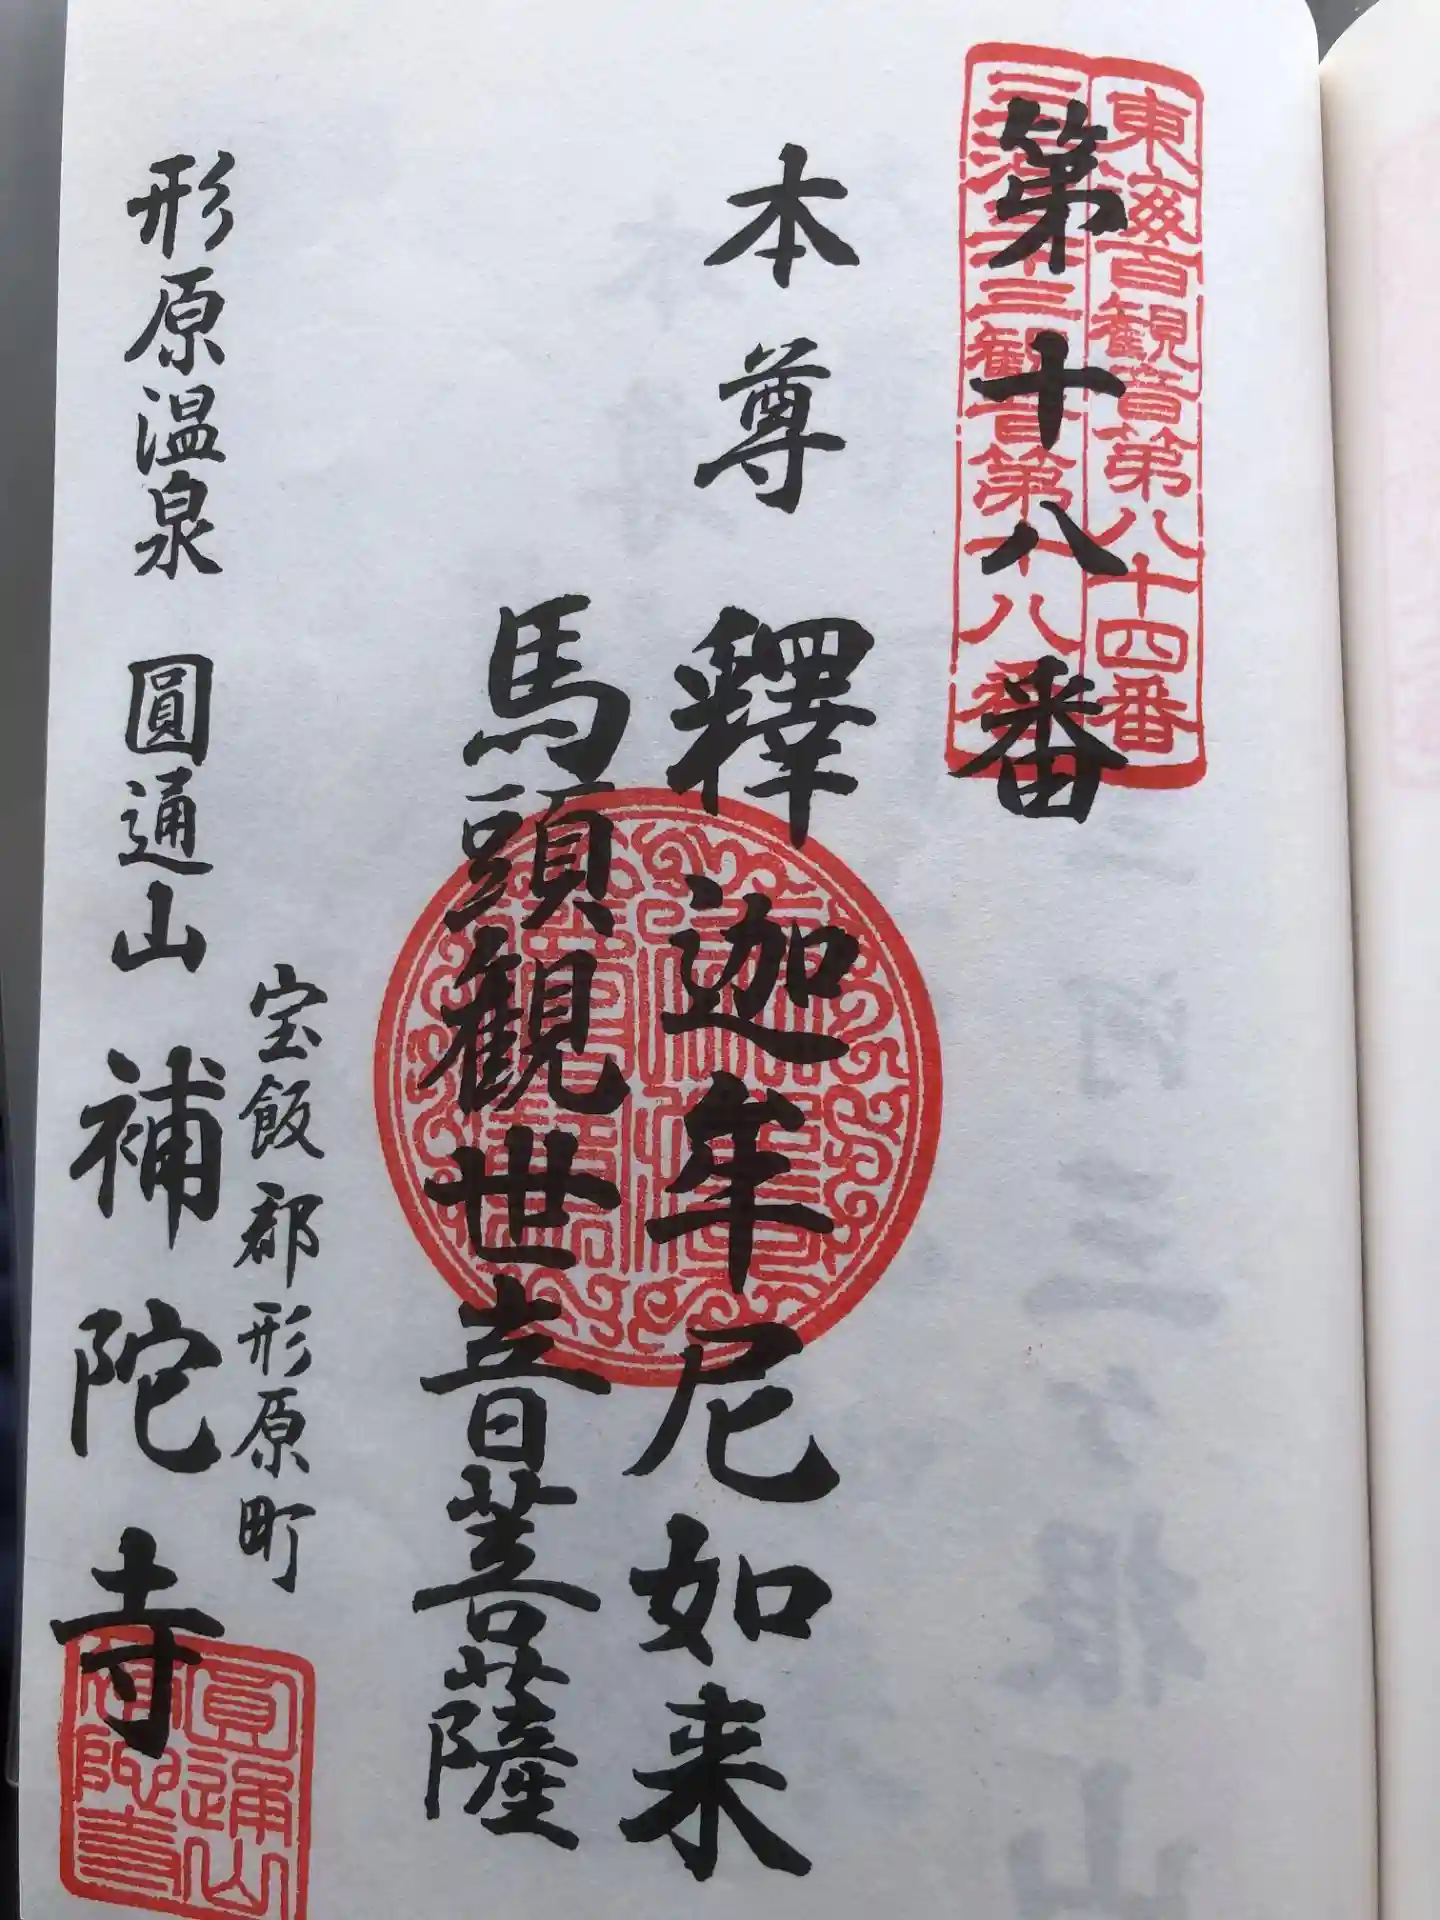 東海百観音第八十四番
三河三十三観音第十八番
第十八番
本尊 釋迦牟尼如来
馬頭観世音菩薩
宝飯郡形原町
形原温泉 圓通山 補陀寺
圓通山
補陀寺